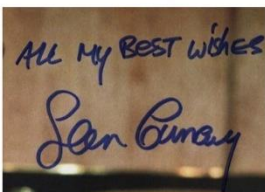 ALL MY BEST WISHES
Sean Connery